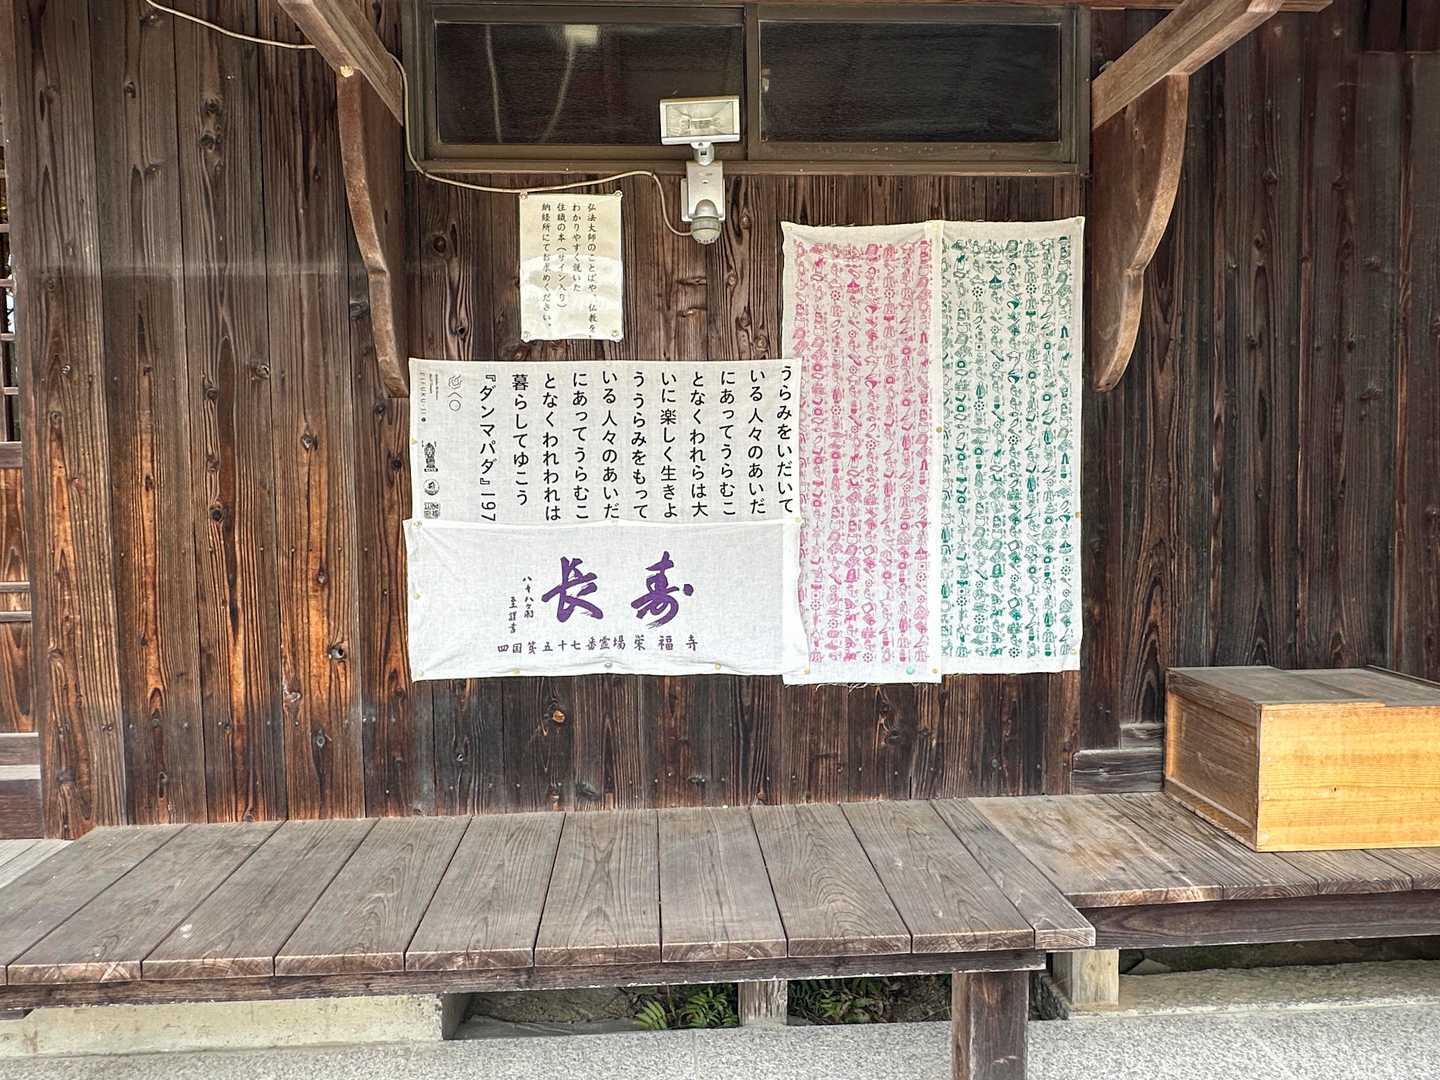 弘法大師のことばや、仏教を、
わかりやすく説いた
住職の本（サイン入り）
納経所にてお求めください。
うらみをいだいて
いる人々のあいだ
にあってうらむこ
となくわれらは大
いに楽しく生きよ
ううらみをもって
いる人々のあいだ
にあってうらむこ
となくわれわれは
暮らしてゆこう
『ダンマパダ』197
EIFUKU-JI
寿
長
四国第五十七番霊場栄福寺